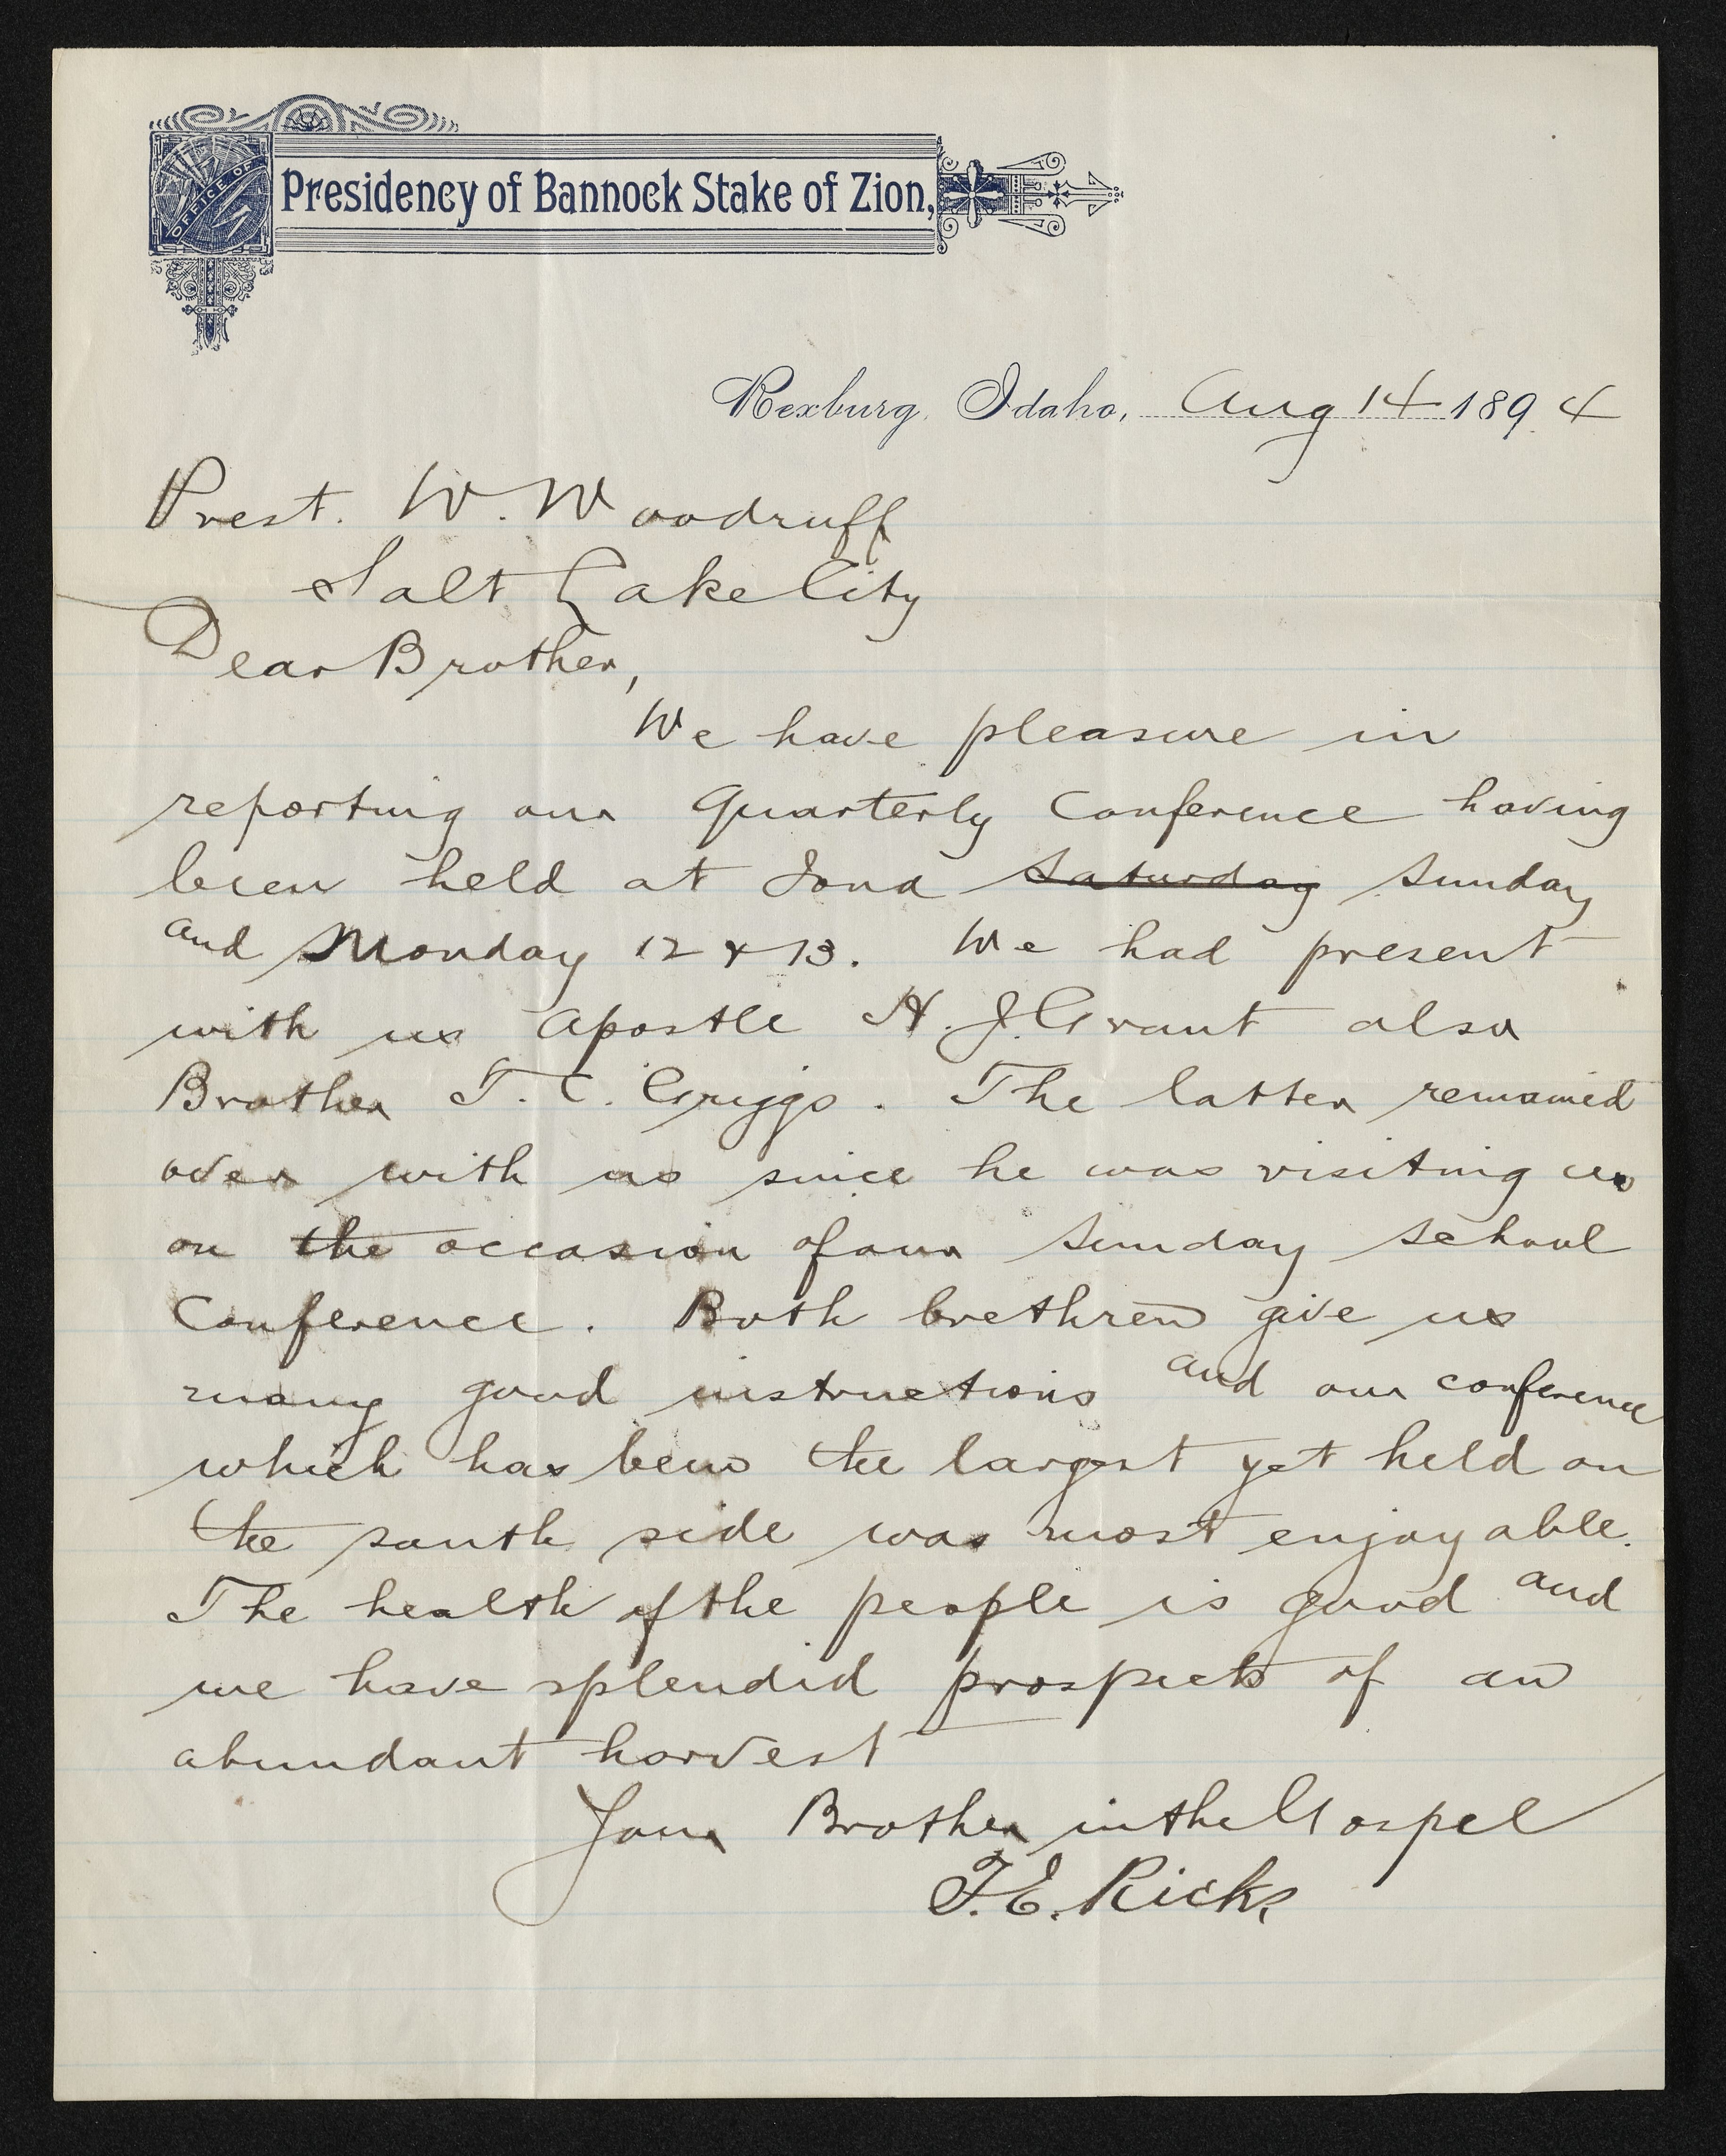 OFFICE OF
Presidency of Bannock Stake of Zion,
Rexburg, Idaho, Aug 14 1894
Prest. W. Woodruff
Salt Lake City
Dear Brother,
We have pleasure in
reporting our Quarterly Conference having
been held at Iona Saturday Sunday
and Monday 12 & 13. We had present
with us Apostle H. J. Grant also
Brother T. C. Griggs. The latter remained
over with us since he was visiting us
on the occasion of our Sunday School
Conference. Both brethren give us
many good instructions and our conference
which has been the largest yet held on
the south side was most enjoyable.
The health of the people is good and
we have splendid prospects of an
abundant harvest
Your Brother in the Gospel
T. E. Ricks